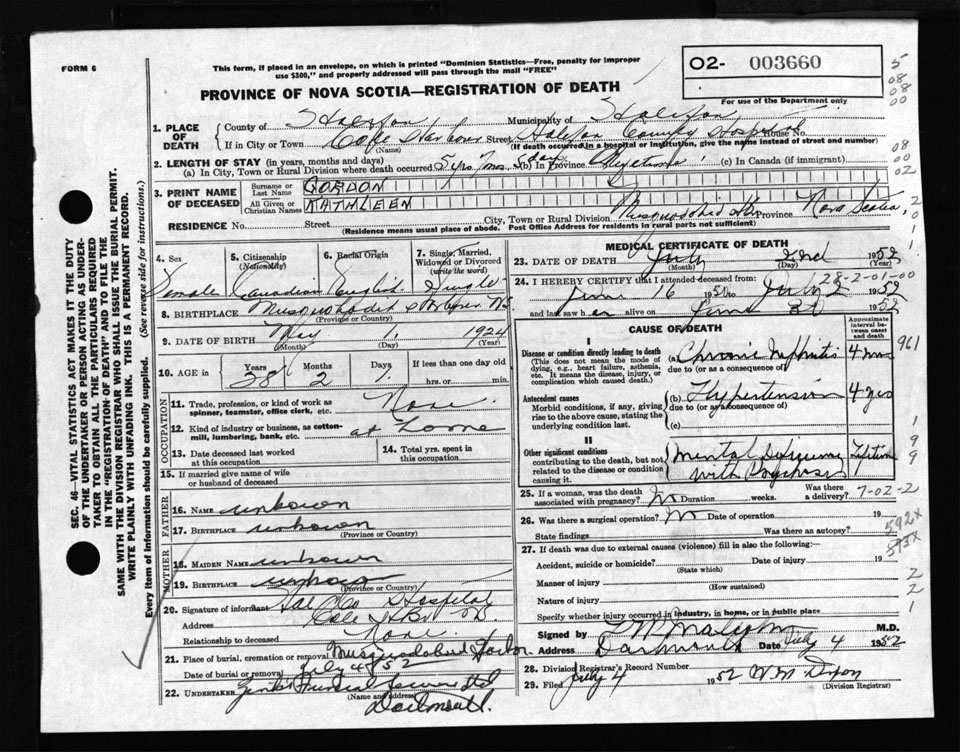 FORM 6
This form, if placed in an envelope, on which is printed "Dominion Statistics—Free, penalty for improper
use $300," and properly addressed will pass through the mail "FREE"
O2- 003660
For use of the Department only
PROVINCE OF NOVA SCOTIA—REGISTRATION OF DEATH
1. PLACE OF DEATH
County of Halifax Municipality of Halifax
If in City or Town Cole Harbour Street Halifax County Hospital House No.
(Name) (If death occurred in a hospital or institution, give the name instead of street and number)
2. LENGTH OF STAY (in years, months and days)
(a) In City, Town or Rural Division where death occurred 5 yrs 7 mos 5 days (b) In Province (c) In Canada (if immigrant)
3. PRINT NAME OF DECEASED
Surname or Last Name GORDON
All Given or Christian Names KATHLEEN
RESIDENCE No. Street City, Town or Rural Division Musquodoboit Hbr Province Nova Scotia
(Residence means usual place of abode. Post Office Address for residents in rural parts not sufficient)
4. Sex Female
5. Citizenship (Nationality) Canadian
6. Racial Origin English
7. Single, Married, Widowed or Divorced (write the word) Single
8. BIRTHPLACE Musquodoboit Harbour NS
(Province or Country)
9. DATE OF BIRTH May 1 1924
(Month) (Day) (Year)
10. AGE in Years 28 Months 2 Days 1 If less than one day old hrs. or min.
OCCUPATION
11. Trade, profession or kind of work as spinner, teamster, office clerk, etc. None.
12. Kind of industry or business, as cotton-mill, lumbering, bank, etc. at home
13. Date deceased last worked at this occupation
14. Total yrs. spent in this occupation
15. If married give name of wife or husband of deceased
FATHER
16. NAME unknown
17. BIRTHPLACE unknown
(Province or Country)
MOTHER
18. MAIDEN NAME unknown
19. BIRTHPLACE unknown
(Province or Country)
20. Signature of informant Hal Co Hospital
Address Cole Hbr N.S.
Relationship to deceased None.
21. Place of burial, cremation or removal Musquodoboit Harbor
Date of burial or removal July 4 1952
22. UNDERTAKER Funeral Service Ltd
(Name and address)
Dartmouth.
MEDICAL CERTIFICATE OF DEATH
23. DATE OF DEATH July 2nd 1952
(Month) (Day)
28-2-01-00
24. I HEREBY CERTIFY that I attended deceased from:
June 16 19 to July 2 1952
and last saw her alive on June 30 1952
CAUSE OF DEATH
Approximate interval between onset and death
I
Disease or condition directly leading to death
(This does not mean the mode of dying, e.g., heart failure, asthenia, etc. It means the disease, injury, or complication which caused death.)
(a) Chronic Nephritis 4 yrs
due to (or as a consequence of)
Antecedent causes
Morbid conditions, if any, giving rise to the above cause, stating the underlying condition last.
(b) Hypertension 4 yrs
due to (or as a consequence of)
(c)
II
Other significant conditions
contributing to the death, but not related to the disease or condition causing it.
Mental Deficiency with Psychosis Lifetime
25. If a woman, was the death associated with pregnancy? No Duration weeks. Was there a delivery?
7-02-2
26. Was there a surgical operation? No Date of operation 19
State findings Was there an autopsy?
592x
593x
27. If death was due to external causes (violence) fill in also the following:—
Accident, suicide or homicide? Date of injury 19
(State which)
Manner of injury
(How sustained)
Nature of injury
Specify whether injury occurred in industry, in home, or in public place
Signed by M.D.
Address Dartmouth Date July 4 1952
28. Division Registrar's Record Number
29. Filed July 4 1952 W M Dixon
(Division Registrar)
SEC. 46—VITAL STATISTICS ACT MAKES IT THE DUTY
OF THE UNDERTAKER OR PERSON ACTING AS UNDER-
TAKER TO OBTAIN ALL THE PARTICULARS REQUIRED
IN THE "REGISTRATION OF DEATH" AND TO FILE THE
SAME WITH THE DIVISION REGISTRAR WHO SHALL ISSUE THE BURIAL PERMIT.
WRITE PLAINLY WITH UNFADING INK. THIS IS A PERMANENT RECORD.
Every item of information should be carefully supplied. (See reverse side for instructions.)
5
08
08
00
08
00
02
2
0
1
1
961
1
9
9
2
2
1